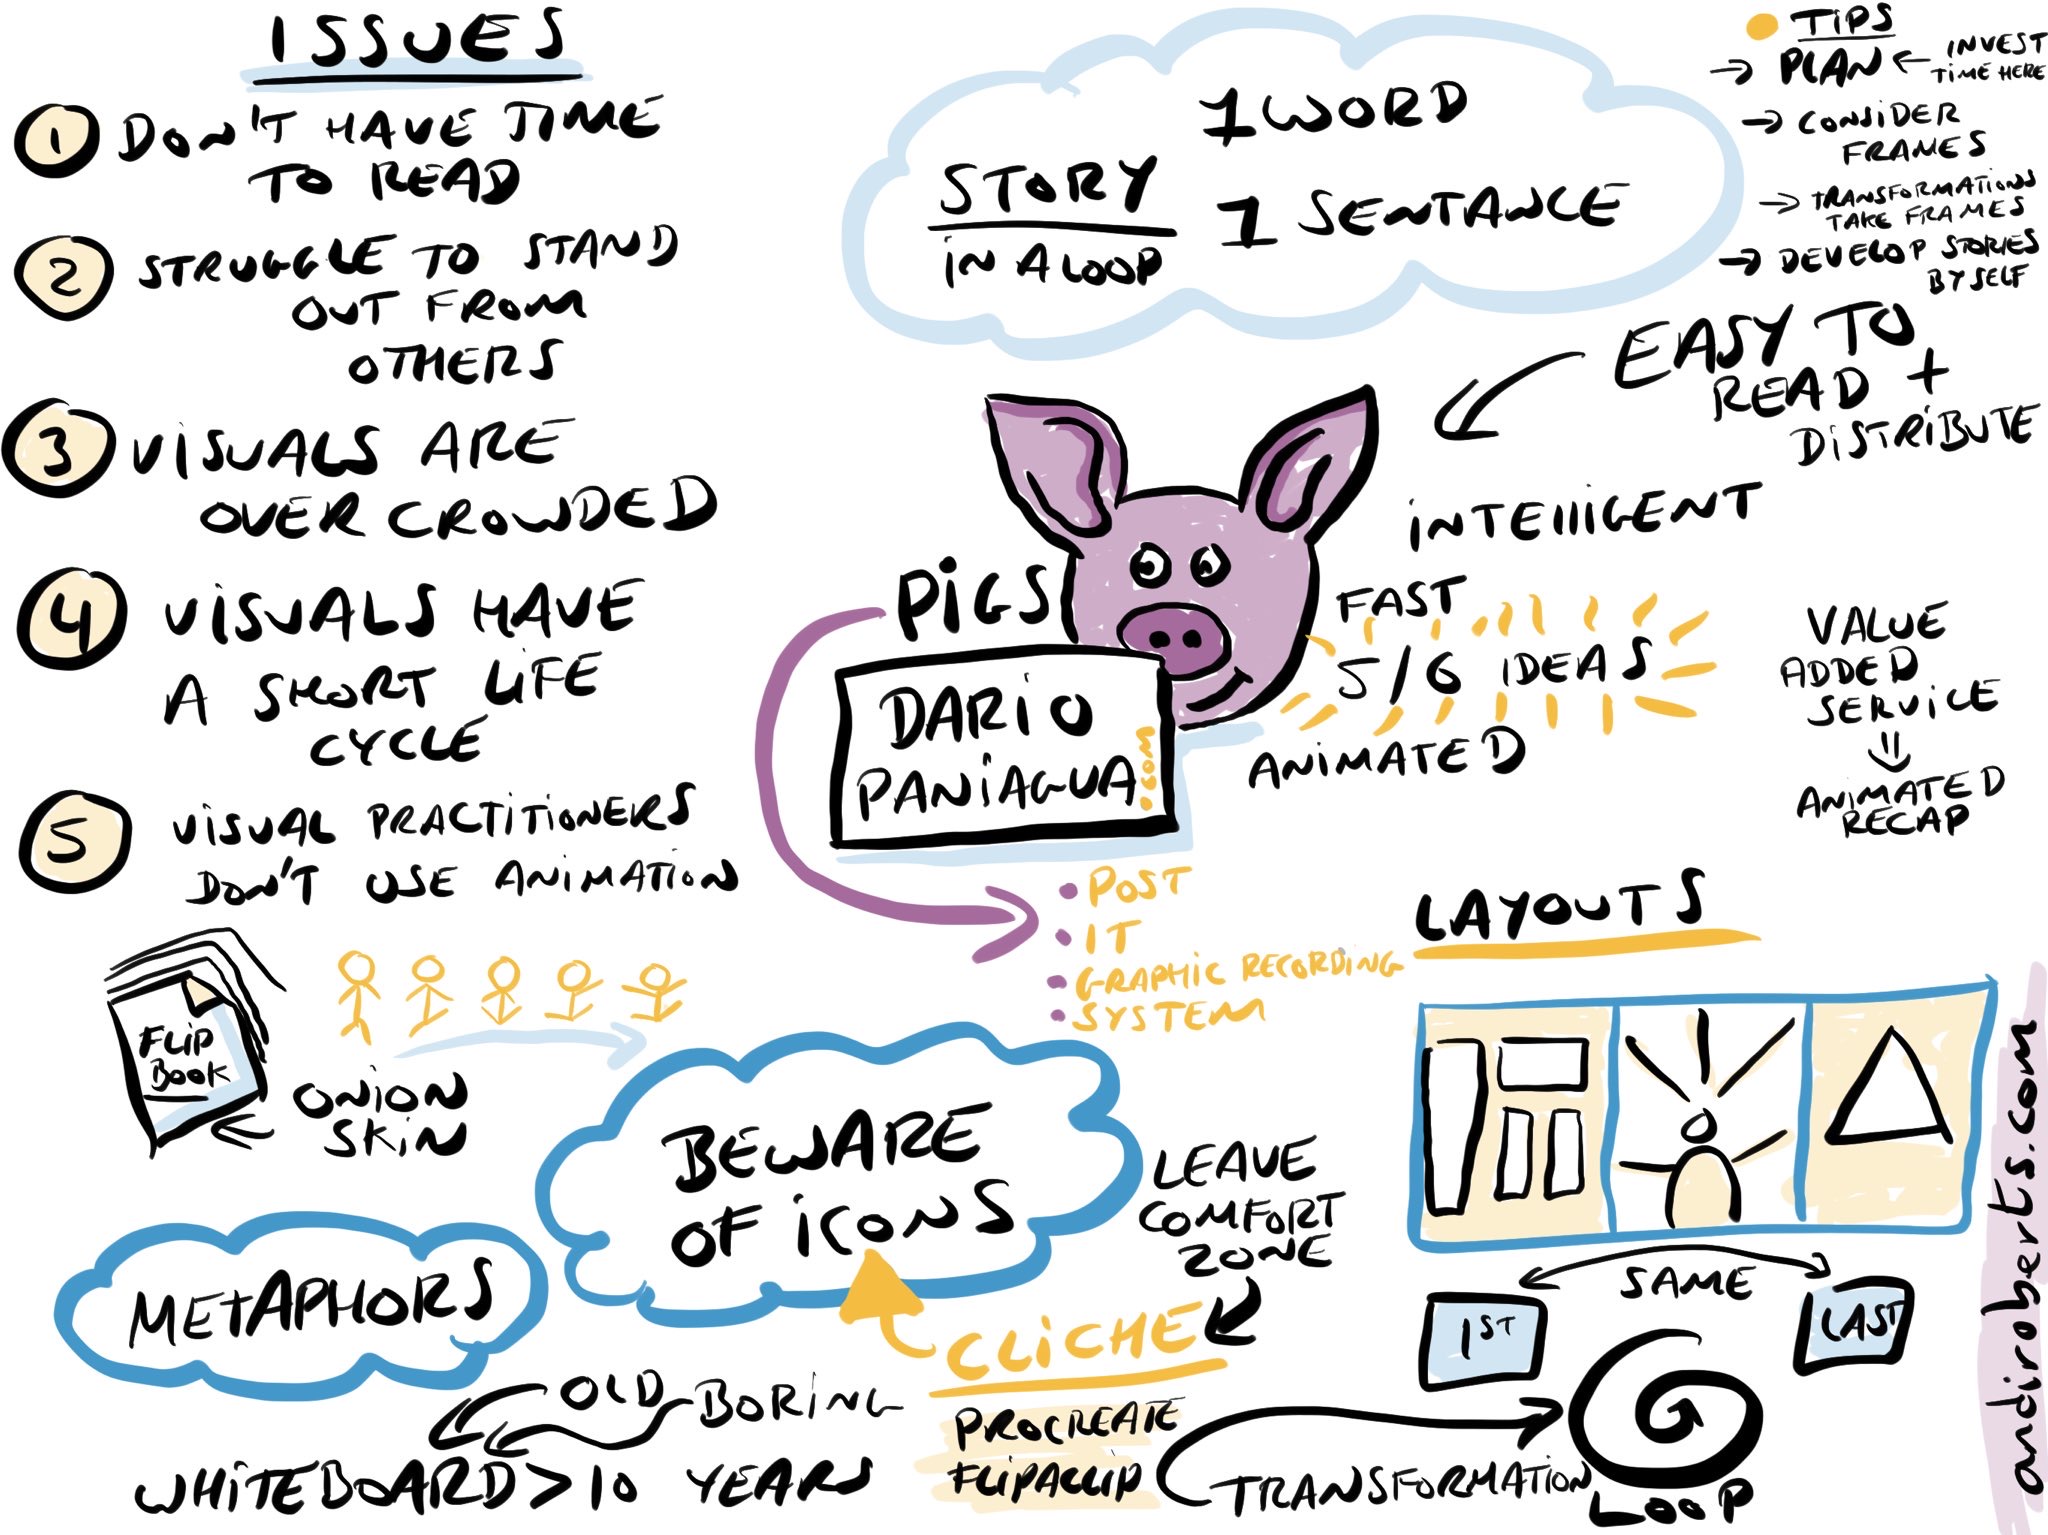 ISSUES
1 DON'T HAVE TIME
TO READ
2 STRUGGLE TO STAND
OUT FROM
OTHERS
3 VISUALS ARE
OVER CROWDED
4 VISUALS HAVE
A SHORT LIFE
CYCLE
5 VISUAL PRACTITIONERS
DON'T USE ANIMATION
FLIP
BOOK
ONION
SKIN
METAPHORS
OLD BORING
WHITEBOARD > 10 YEARS
1 WORD
STORY
IN A LOOP
1 SENTANCE
TIPS
→ PLAN ← INVEST
TIME HERE
→ CONSIDER
FRAMES
→ TRANSFORMATIONS
TAKE FRAMES
→ DEVELOP STORIES
BY SELF
EASY TO
READ +
DISTRIBUTE
PIGS
DARIO
PANIAGUA.COM
INTELLIGENT
FAST
5/6 IDEAS
ANIMATED
VALUE
ADDED
SERVICE
ANIMATED
RECAP
• POST
• IT
• GRAPHIC RECORDING
• SYSTEM
BEWARE
OF ICONS
LEAVE
COMFORT
ZONE
CLICHE
PROCREATE
FLIPACLIP
LAYOUTS
SAME
1ST
LAST
TRANSFORMATION
LOOP
andiroberts.com